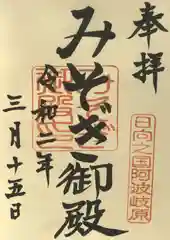 奉拝
みそぎ御殿
令和二年
三月十五日
日向之国阿波岐原